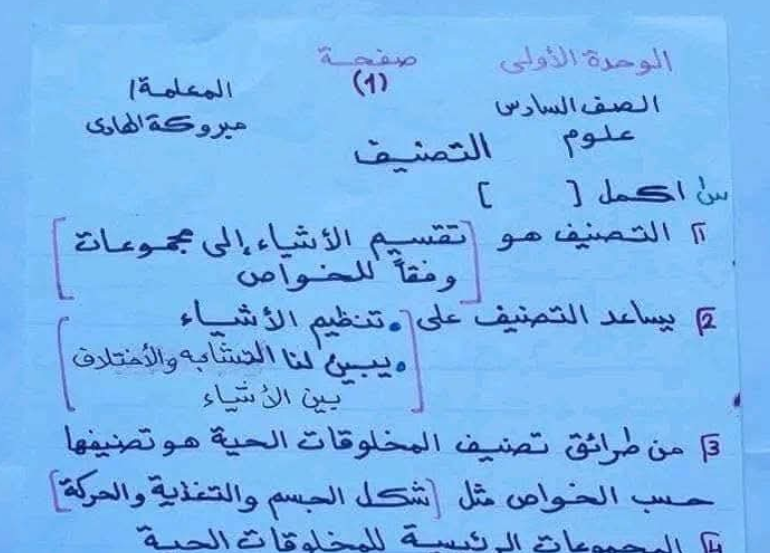 الوحدة الأولى
صفحة
(1)
المعلمة/
مبروكة الهادى
الصف السادس
علوم
التصنيف
س/ اكمل [ ]
1 التصنيف هو [تقسيم الأشياء إلى مجموعات
وفقاً للخواص]
2 يساعد التصنيف على [• تنظيم الأشياء
• يبين لنا التشابه والأختلاف
بين الأشياء]
3 من طرائق تصنيف المخلوقات الحية هو تصنيفها
حسب الخواص مثل [شكل الجسم والتغذية والحركة]
4 المجموعات الرئيسية للمخلوقات الحية